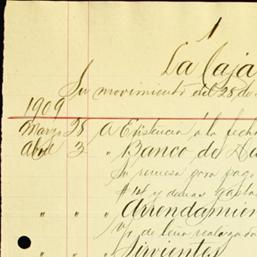 1
La Caja
Su movimiento del 28 de
1909
Marzo 28 A Existencia á la fecha
Abril 3 " Banco de
Su remesa para pago
#14 y demas gastos
" " " Arrendamien
de leña realizada
" " " Sirvientes